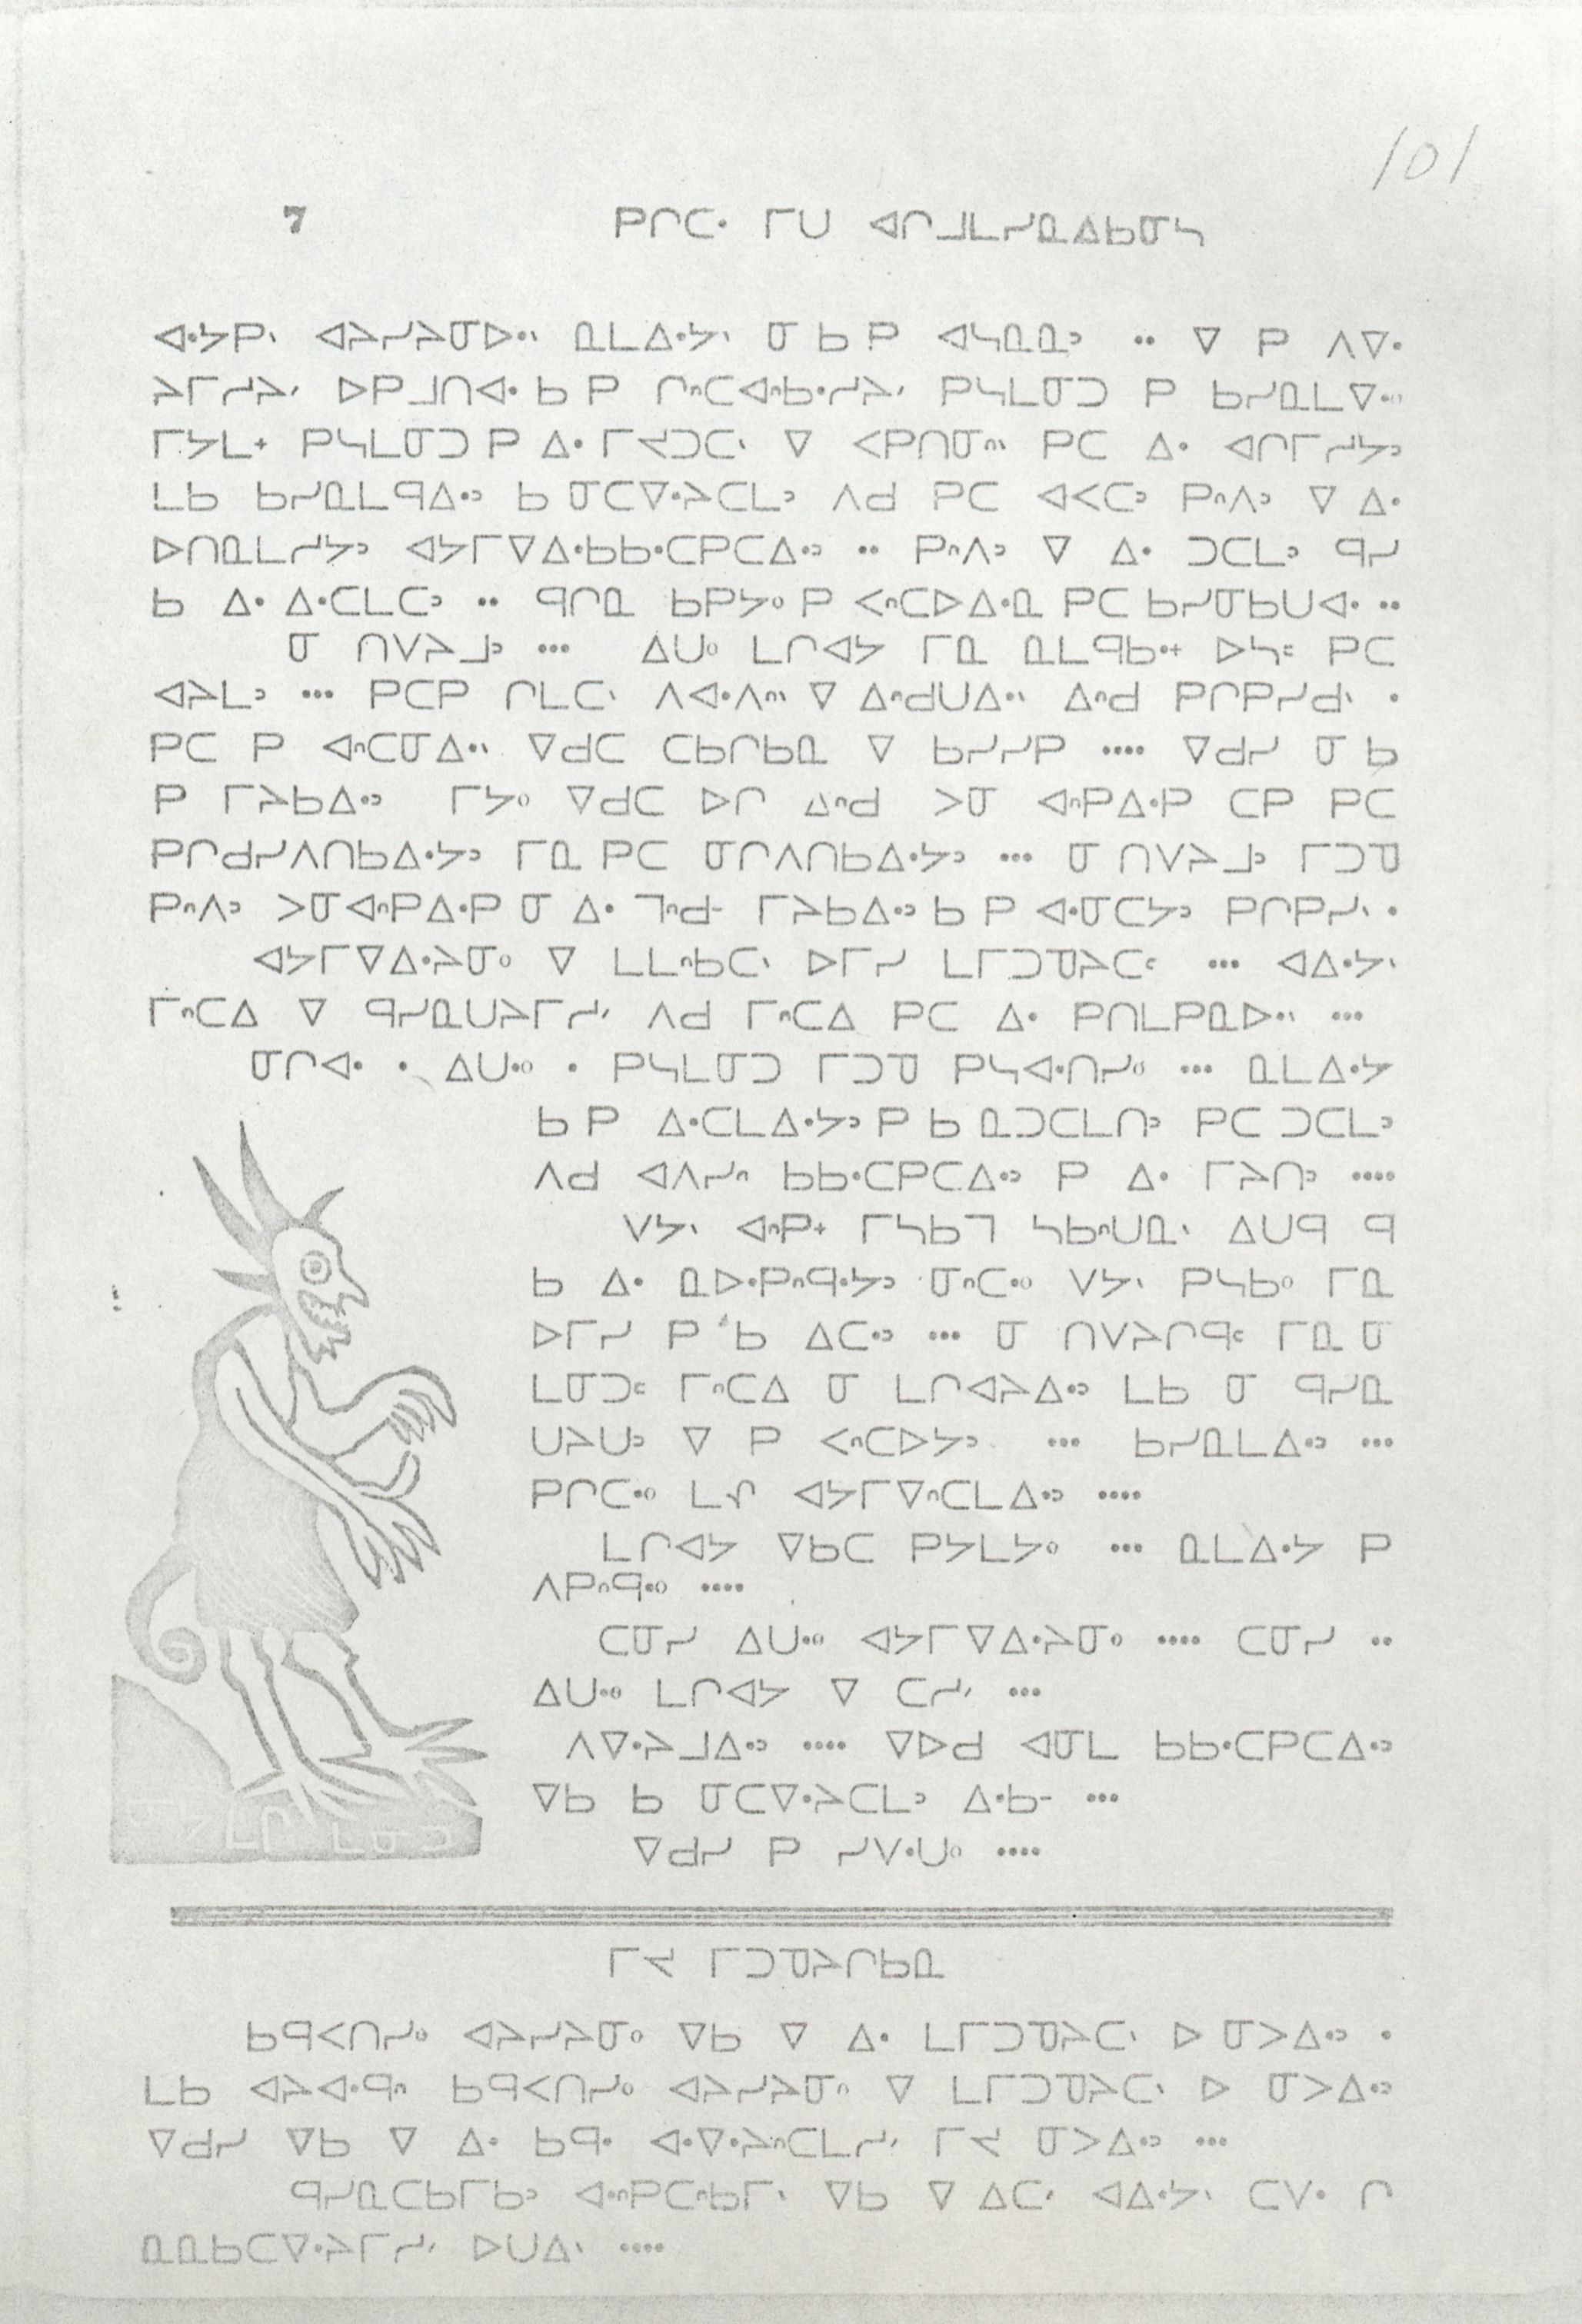 101
7 ᑭᒋᑕᐧ ᒥᑌ ᐊᒋᒧᒪᓯᓇᐃᑲᓂᓴ
ᐊᐧᔭᑭᐠ ᐊᔨᓯᔨᓂᐅᐧᐠ ᓇᒪᐃᐧᔭᐠ ᓂ ᑲ ᑭ ᐊᓴᓇᓇᐣ ·· ᐁ ᑭ ᐱᐁᐧ
ᔨᒥᓯᔨᐟ ᐅᑭᒧᑎᐊᐧ ᑲ ᑭ ᒋᐢᑕᐊᐧᐢᑲᐧᓯᔨᐟ ᑭᓴᒪᓂᑐ ᑭ ᑲᓯᓇᒪᐁᐧᐤ
ᒥᔭᒪᐩ ᑭᓴᒪᓂᑐ ᑭ ᐃᐧ ᒥᔪᑐᑕᐠ ᐁ ᐸᑭᑎᓂᐢᐠ ᑭᑕ ᐃᐧ ᐊᒋᒥᓯᔭᐣ
ᒪᑲ ᑲᓯᓇᒪᑫᐃᐧᐣ ᑲ ᓂᑕᐁᐧᔨᑕᒪᐣ ᐱᑯ ᑭᑕ ᐊᐸᑕᐣ ᑭᐢᐱᐣ ᐁ ᐃᐧ
ᐅᑎᓇᒪᓯᔭᐣ ᐊᔭᒥᐁᐃᐧᑲᑲᐧᑕᑭᑕᐃᐧᐣ ·· ᑭᐢᐱᐣ ᐁ ᐃᐧ ᑐᑕᒪᐣ ᑫᓯ
ᑲ ᐃᐧ ᐃᐧᑕᒪᑕᐣ ·· ᑫᒋᓇ ᑲᑭᔭᐤ ᑭ ᐸᐢᑕᐅᐃᐧᓇ ᑭᑕ ᑲᓯᓂᑲᑌᐊᐧ ··
ᓂ ᑎᐯᔨᒧᐣ ··· ᐃᑌᐤ ᒪᒋᐊᔭ ᒥᓇ ᓇᒪᑫᑲᐧᐩ ᐅᓴᒼ ᑭᑕ
ᐊᔨᒪᐣ ··· ᑭᑕᑭ ᒋᒪᑕᐠ ᐱᐊᐧᐱᐢᐠ ᐁ ᐃᐢᑯᑌᐃᐧᐠ ᐃᐢᑯ ᑭᒋᑭᓯᑯᐠ ·
ᑭᑕ ᑭ ᐊᐢᑕᓂᐃᐧᐠ ᐁᑯᑕ ᑕᑲᒋᑲᓇ ᐁ ᑲᓯᓯᑭ ···· ᐁᑯᓯ ᓂ ᑲ
ᑭ ᒥᔨᑲᐃᐧᐣ ᒥᔭᐤ ᐁᑯᑕ ᐅᒋ ᐃᐢᑯ ᐳᓂ ᐊᐢᑭᐃᐧᑭ ᑕᑭ ᑭᑕ
ᑭᒋᑯᓯᐱᑎᑲᐃᐧᔭᐣ ᒥᓇ ᑭᑕ ᓂᒋᐱᑎᑲᐃᐧᔭᐣ ··· ᓂ ᑎᐯᔨᒧᐣ ᒥᑐᓀ
ᑭᐢᐱᐣ ᐳᓂᐊᐢᑭᐃᐧᑭ ᓂ ᐃᐧ ᒣᐢᑯᐨ ᒥᔨᑲᐃᐧᐣ ᑲ ᑭ ᐊᐧᓂᑕᔭᐣ ᑭᒋᑭᓯᐠ ·
ᐊᔭᒥᐁᐃᐧᔨᓂᐤ ᐁ ᒪᒪᐢᑲᑕᐠ ᐅᒥᓯ ᒪᒥᑐᓀᔨᑕᒼ ··· ᐊᐃᐧᔭᐠ
ᒥᐢᑕᐃ ᐁ ᑫᓯᓇᑌᔨᒥᓯᐟ ᐱᑯ ᒥᐢᑕᐃ ᑭᑕ ᐃᐧ ᑭᑎᒪᑭᓇᐅᐧᐠ ···
ᓂᒋᐊᐧ · ᐃᑌᐧᐤ · ᑭᓴᒪᓂᑐ ᒥᑐᓀ ᑭᓴᐊᐧᑎᓯᐤ ··· ᓇᒪᐃᐧᔭ
ᑲ ᑭ ᐃᐧᑕᒪᐃᐧᔭᐣ ᑭ ᑲ ᓇᑐᑕᒪᑎᐣ ᑭᑕ ᑐᑕᒪᐣ
ᐱᑯ ᐊᐱᓯᐢ ᑲᑲᐧᑕᑭᑕᐃᐧᐣ ᑭ ᐃᐧ ᒥᔨᑎᐣ ····
ᐯᔭᐠ ᐊᐢᑭᐩ ᒥᓴᑲᒣ ᓴᑲᐢᑌᓇᐠ ᐃᑌᑫ ᑫ
ᑲ ᐃᐧ ᓇᐅᐧᑭᐢᑫᐧᔭᐣ ᓂᐢᑕᐧᐤ ᐯᔭᐠ ᑭᓴᑲᐤ ᒥᓇ
ᐅᒥᓯ ᑭ ᑲ ᐃᑕᐧᐣ ··· ᓂ ᑎᐯᔨᒋᑫᒼ ᒥᓇ ᓂ
ᒪᓂᑐᒼ ᒥᐢᑕᐃ ᓂ ᒪᒋᐊᔨᐃᐧᐣ ᒪᑲ ᓂ ᑫᓯᓇ
ᑌᔨᑌᐣ ᐁ ᑭ ᐸᐢᑕᐅᔭᐣ ··· ᑲᓯᓇᒪᐃᐧᐣ ···
ᑭᒋᑕᐧᐤ ᒪᓵ ᐊᔭᒥᐁᐢᑕᒪᐃᐧᐣ ····
ᒪᒋᐊᔭ ᐁᑲᑕ ᑭᔭᒪᔭᐤ ··· ᓇᒪᐃᐧᔭ ᑭ
ᐱᑭᐢᑫᐧᐤ ····
ᑕᓂᓯ ᐃᑌᐧᐤ ᐊᔭᒥᐁᐃᐧᔨᓂᐤ ···· ᑕᓂᓯ ··
ᐃᑌᐧᐤ ᒪᒋᐊᔭ ᐁ ᑕᓯᐟ ···
ᐱᐁᐧᔨᒧᐃᐧᐣ ···· ᐁᐅᑯ ᐊᓂᒪ ᑲᑲᐧᑕᑭᑕᐃᐧᐣ
ᐁᑲ ᑲ ᓂᑕᐁᐧᔨᑕᒪᐣ ᐃᐧᑲᐨ ···
ᐁᑯᓯ ᑭ ᓯᐯᐧᑌᐤ ····
ᒥᔪ ᒥᑐᓀᔨᒋᑲᓇ
ᑲᑫᐸᑎᓯᐤ ᐊᔨᓯᔨᓂᐤ ᐁᑲ ᐁ ᐃᐧ ᒪᒥᑐᓀᔨᑕᐠ ᐅ ᓂᐳᐃᐧᐣ ·
ᒪᑲ ᐊᔨᐊᐧᑫᐢ ᑲᑫᐸᑎᓯᐤ ᐊᔨᓯᔨᓂᐤ ᐁ ᒪᒥᑐᓀᔨᑕᐠ ᐅ ᓂᐳᐃᐧᐣ
ᐁᑯᓯ ᐁᑲ ᐁ ᐃᐧ ᑲᑫᐧ ᐊᐧᐁᐧᔨᐢᑕᒪᓯᐟ ᒥᔪ ᓂᐳᐃᐧᐣ ···
ᑫᓯᓇᑕᑲᒥᑲᐣ ᐊᐧᐢᑭᑕᐢᑲᒥᐠ ᐁᑲ ᐁ ᐃᑕᐟ ᐊᐃᐧᔭᐠ ᑕᐯᐧ ᒋ
ᓇᓇᑲᑕᐁᐧᔨᒥᓯᐟ ᐅᑌᐃᐠ ····